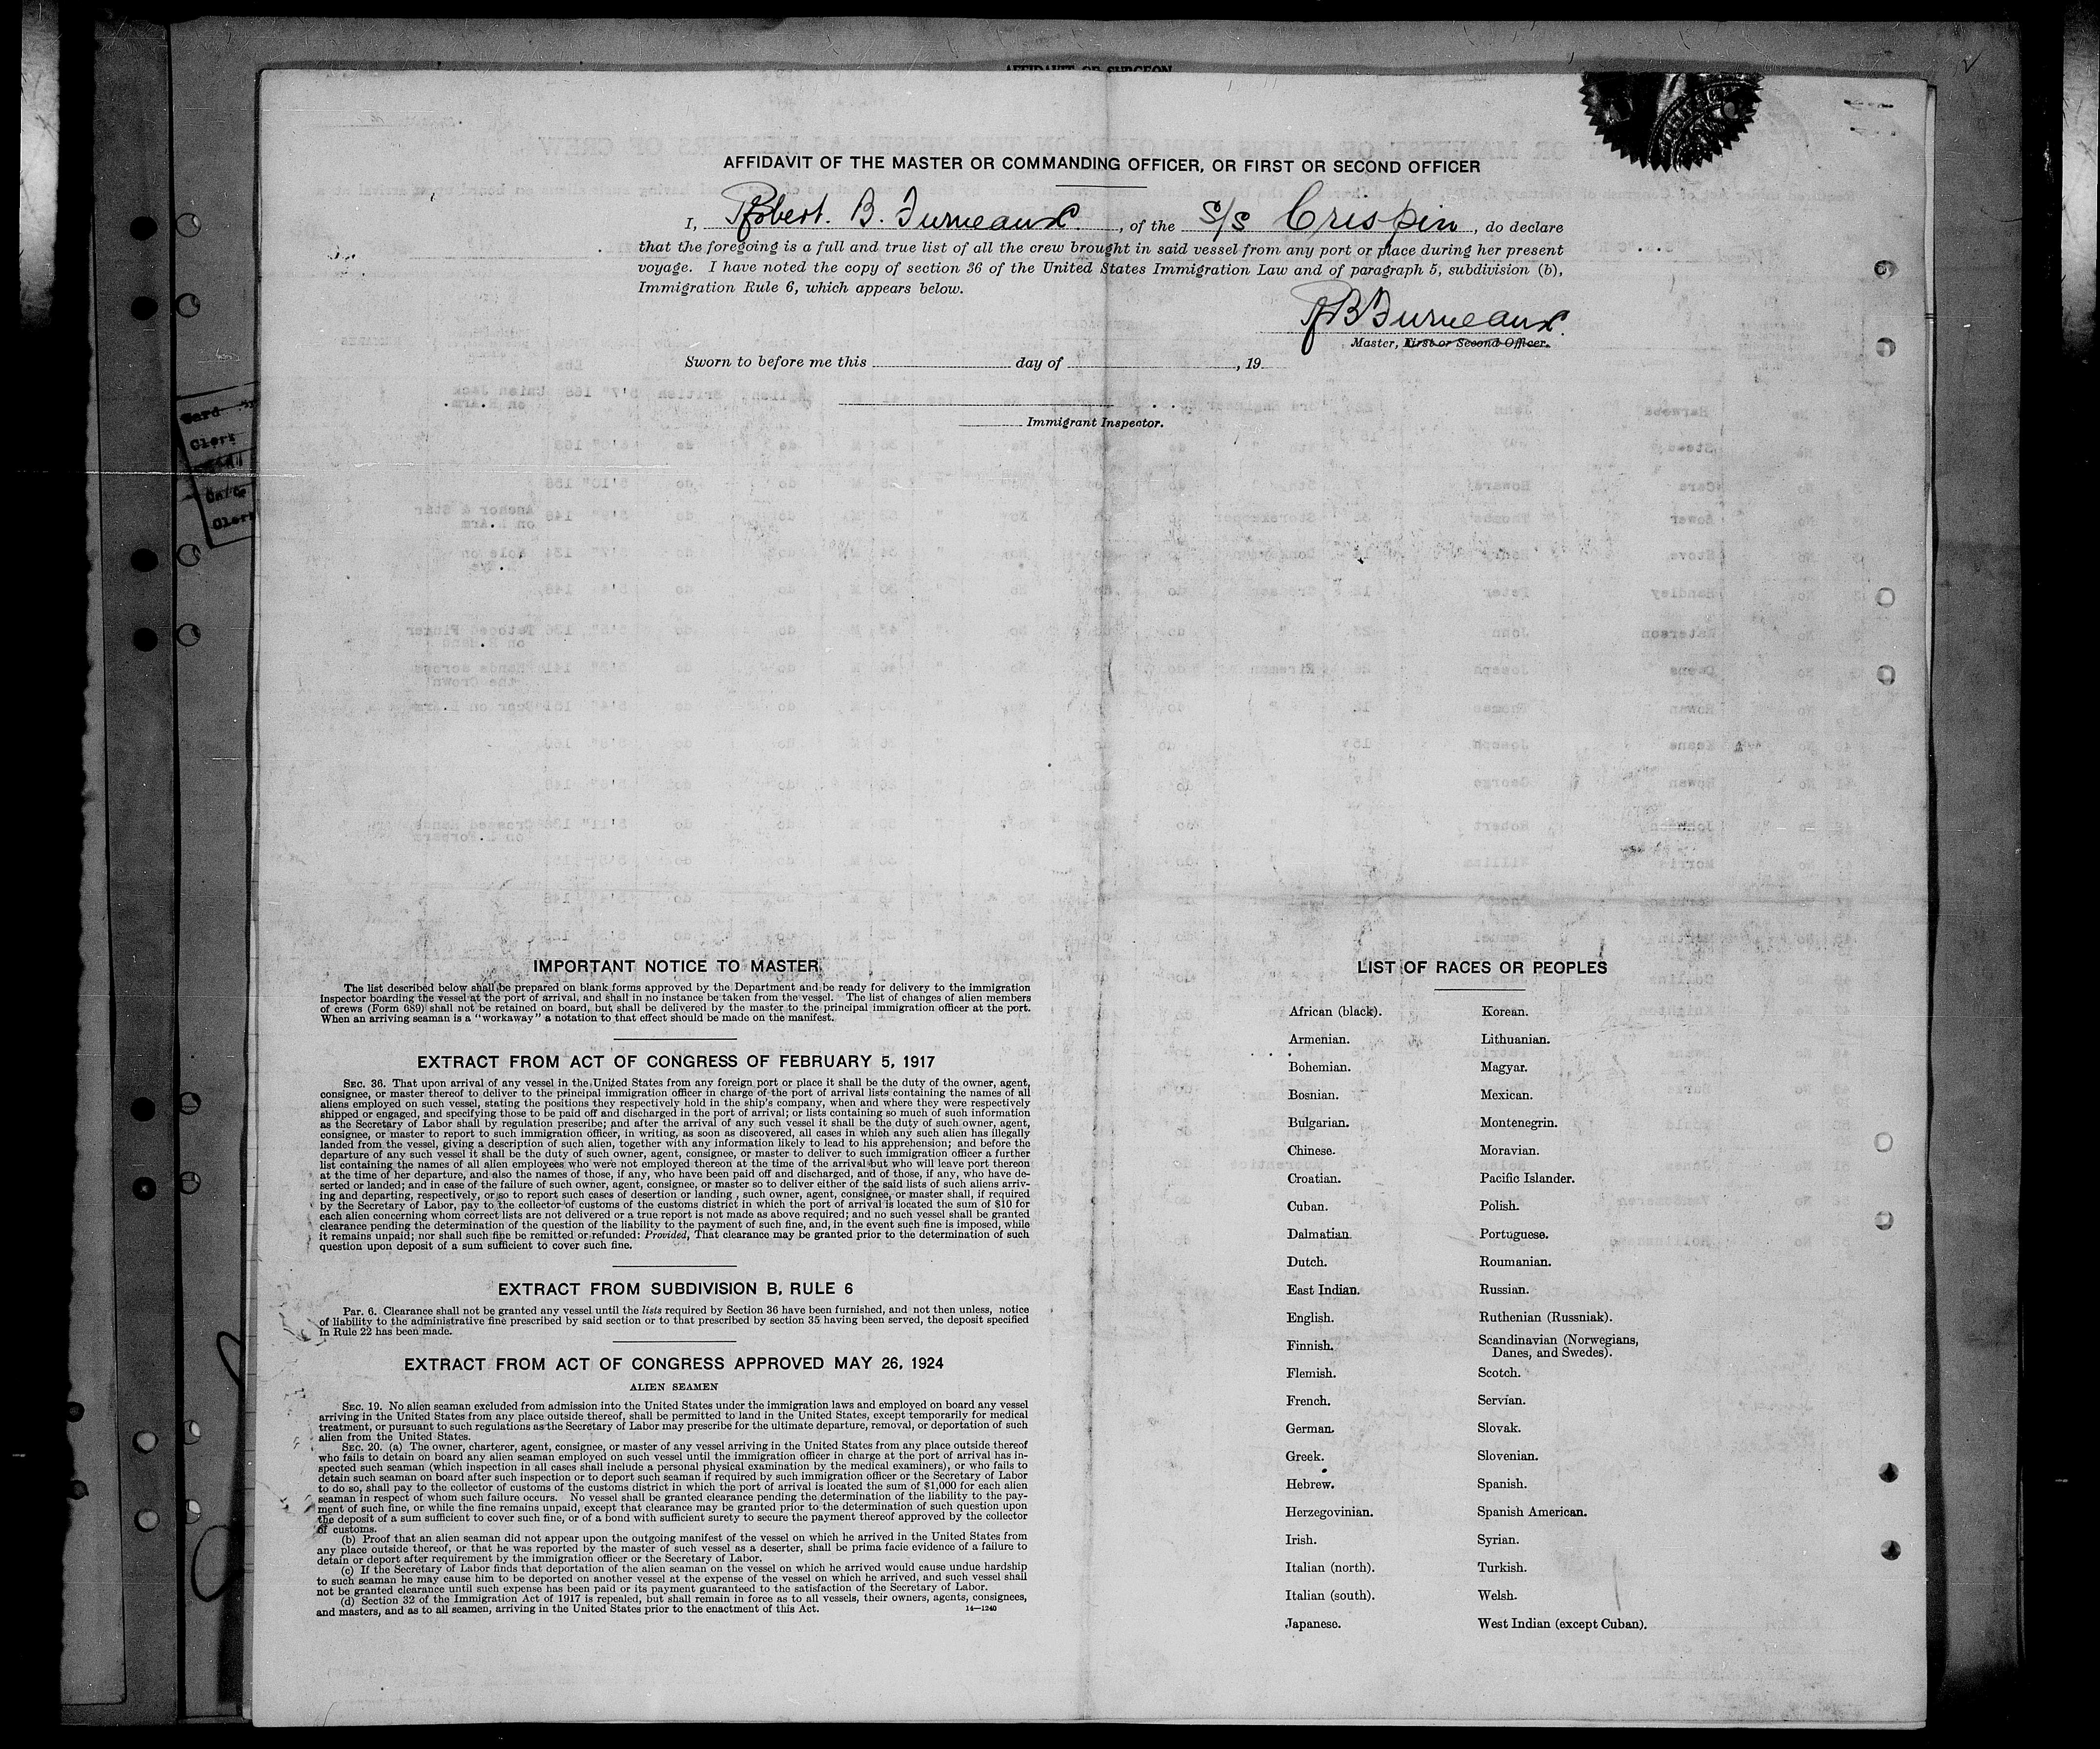 AFFIDAVIT OF THE MASTER OR COMMANDING OFFICER, OR FIRST OR SECOND OFFICER
I, Robert. B. Furneaux. , of the S/S Crispin , do declare
that the foregoing is a full and true list of all the crew brought in said vessel from any port or place during her present
voyage. I have noted the copy of section 36 of the United States Immigration Law and of paragraph 5, subdivision (b),
Immigration Rule 6, which appears below.
RB Furneaux.
Master, First or Second Officer.
Sworn to before me this day of , 19
Immigrant Inspector.
IMPORTANT NOTICE TO MASTER
The list described below shall be prepared on blank forms approved by the Department and be ready for delivery to the immigration
inspector boarding the vessel at the port of arrival, and shall in no instance be taken from the vessel. The list of changes of alien members
of crews (Form 689) shall not be retained on board, but shall be delivered by the master to the principal immigration officer at the port.
When an arriving seaman is a "workaway" a notation to that effect should be made on the manifest.
EXTRACT FROM ACT OF CONGRESS OF FEBRUARY 5, 1917
SEC. 36. That upon arrival of any vessel in the United States from any foreign port or place it shall be the duty of the owner, agent,
consignee, or master thereof to deliver to the principal immigration officer in charge of the port of arrival lists containing the names of all
aliens employed on such vessel, stating the positions they respectively hold in the ship's company, when and where they were respectively
shipped or engaged, and specifying those to be paid off and discharged in the port of arrival; or lists containing so much of such information
as the Secretary of Labor shall by regulation prescribe; and after the arrival of any such vessel it shall be the duty of such owner, agent,
consignee, or master to report to such immigration officer, in writing, as soon as discovered, all cases in which any such alien has illegally
landed from the vessel, giving a description of such alien, together with any information likely to lead to his apprehension; and before the
departure of any such vessel it shall be the duty of such owner, agent, consignee, or master to deliver to such immigration officer a further
list containing the names of all alien employees who were not employed thereon at the time of the arrival but who will leave port thereon
at the time of her departure, and also the names of those, if any, who have been paid off and discharged, and of those, if any, who have de-
serted or landed; and in case of the failure of such owner, agent, consignee, or master so to deliver either of the said lists of such aliens arriv-
ing and departing, respectively, or so to report such cases of desertion or landing , such owner, agent, consignee, or master shall, if required
by the Secretary of Labor, pay to the collector of customs of the customs district in which the port of arrival is located the sum of $10 for
each alien concerning whom correct lists are not delivered or a true report is not made as above required; and no such vessel shall be granted
clearance pending the determination of the question of the liability to the payment of such fine, and, in the event such fine is imposed, while
it remains unpaid; nor shall such fine be remitted or refunded: Provided, That clearance may be granted prior to the determination of such
question upon deposit of a sum sufficient to cover such fine.
EXTRACT FROM SUBDIVISION B, RULE 6
Par. 6. Clearance shall not be granted any vessel until the lists required by Section 36 have been furnished, and not then unless, notice
of liability to the administrative fine prescribed by said section or to that prescribed by section 35 having been served, the deposit specified
in Rule 22 has been made.
EXTRACT FROM ACT OF CONGRESS APPROVED MAY 26, 1924
ALIEN SEAMEN
SEC. 19. No alien seaman excluded from admission into the United States under the immigration laws and employed on board any vessel
arriving in the United States from any place outside thereof, shall be permitted to land in the United States, except temporarily for medical
treatment, or pursuant to such regulations as the Secretary of Labor may prescribe for the ultimate departure, removal, or deportation of such
alien from the United States.
SEC. 20. (a) The owner, charterer, agent, consignee, or master of any vessel arriving in the United States from any place outside thereof
who fails to detain on board any alien seaman employed on such vessel until the immigration officer in charge at the port of arrival has in-
spected such seaman (which inspection in all cases shall include a personal physical examination by the medical examiners), or who fails to
detain such seaman on board after such inspection or to deport such seaman if required by such immigration officer or the Secretary of Labor
to do so, shall pay to the collector of customs of the customs district in which the port of arrival is located the sum of $1,000 for each alien
seaman in respect of whom such failure occurs. No vessel shall be granted clearance pending the determination of the liability to the pay-
ment of such fine, or while the fine remains unpaid, except that clearance may be granted prior to the determination of such question upon
the deposit of a sum sufficient to cover such fine, or of a bond with sufficient surety to secure the payment thereof approved by the collector
of customs.
(b) Proof that an alien seaman did not appear upon the outgoing manifest of the vessel on which he arrived in the United States from
any place outside thereof, or that he was reported by the master of such vessel as a deserter, shall be prima facie evidence of a failure to
detain or deport after requirement by the immigration officer or the Secretary of Labor.
(c) If the Secretary of Labor finds that deportation of the alien seaman on the vessel on which he arrived would cause undue hardship
to such seaman he may cause him to be deported on another vessel at the expense of the vessel on which he arrived, and such vessel shall
not be granted clearance until such expense has been paid or its payment guaranteed to the satisfaction of the Secretary of Labor.
(d) Section 32 of the Immigration Act of 1917 is repealed, but shall remain in force as to all vessels, their owners, agents, consignees,
and masters, and as to all seamen, arriving in the United States prior to the enactment of this Act.
14—1240
LIST OF RACES OR PEOPLES
African (black).
Armenian.
Bohemian.
Bosnian.
Bulgarian.
Chinese.
Croatian.
Cuban.
Dalmatian.
Dutch.
East Indian.
English.
Finnish.
Flemish.
French.
German.
Greek.
Hebrew.
Herzegovinian.
Irish.
Italian (north).
Italian (south).
Japanese.
Korean.
Lithuanian.
Magyar.
Mexican.
Montenegrin.
Moravian.
Pacific Islander.
Polish.
Portuguese.
Roumanian.
Russian.
Ruthenian (Russniak).
Scandinavian (Norwegians,
Danes, and Swedes).
Scotch.
Servian.
Slovak.
Slovenian.
Spanish.
Spanish American.
Syrian.
Turkish.
Welsh.
West Indian (except Cuban).